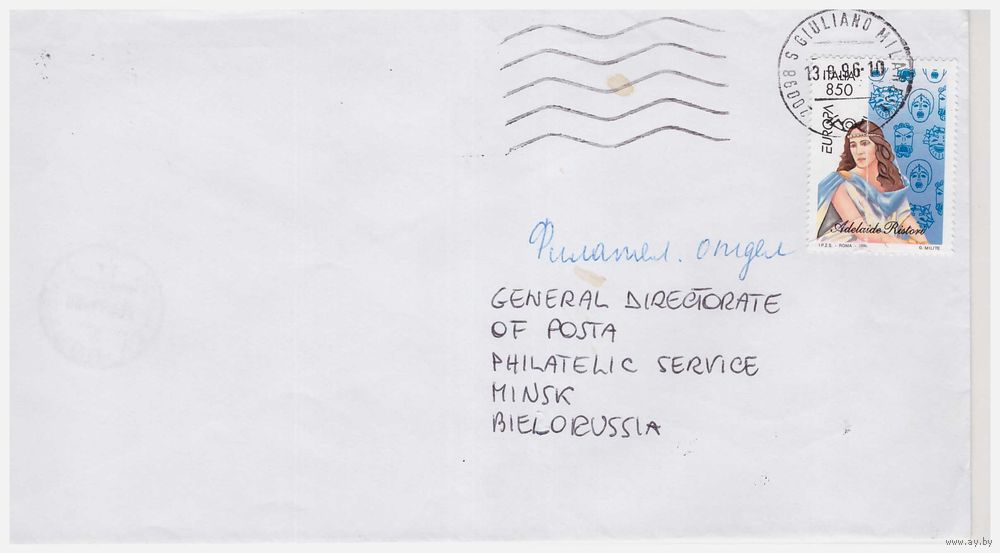 20098 S GIULIANO MILAN
13.9.96-10
ITALIA
850
EUROPA
Adelaide Ristori
I.P.Z.S. - ROMA - 1996
G. MILITE
Филател. отдел
GENERAL DIRECTORATE
OF POSTA
PHILATELIC SERVICE
MINSK
BIELORUSSIA
www.ay.by